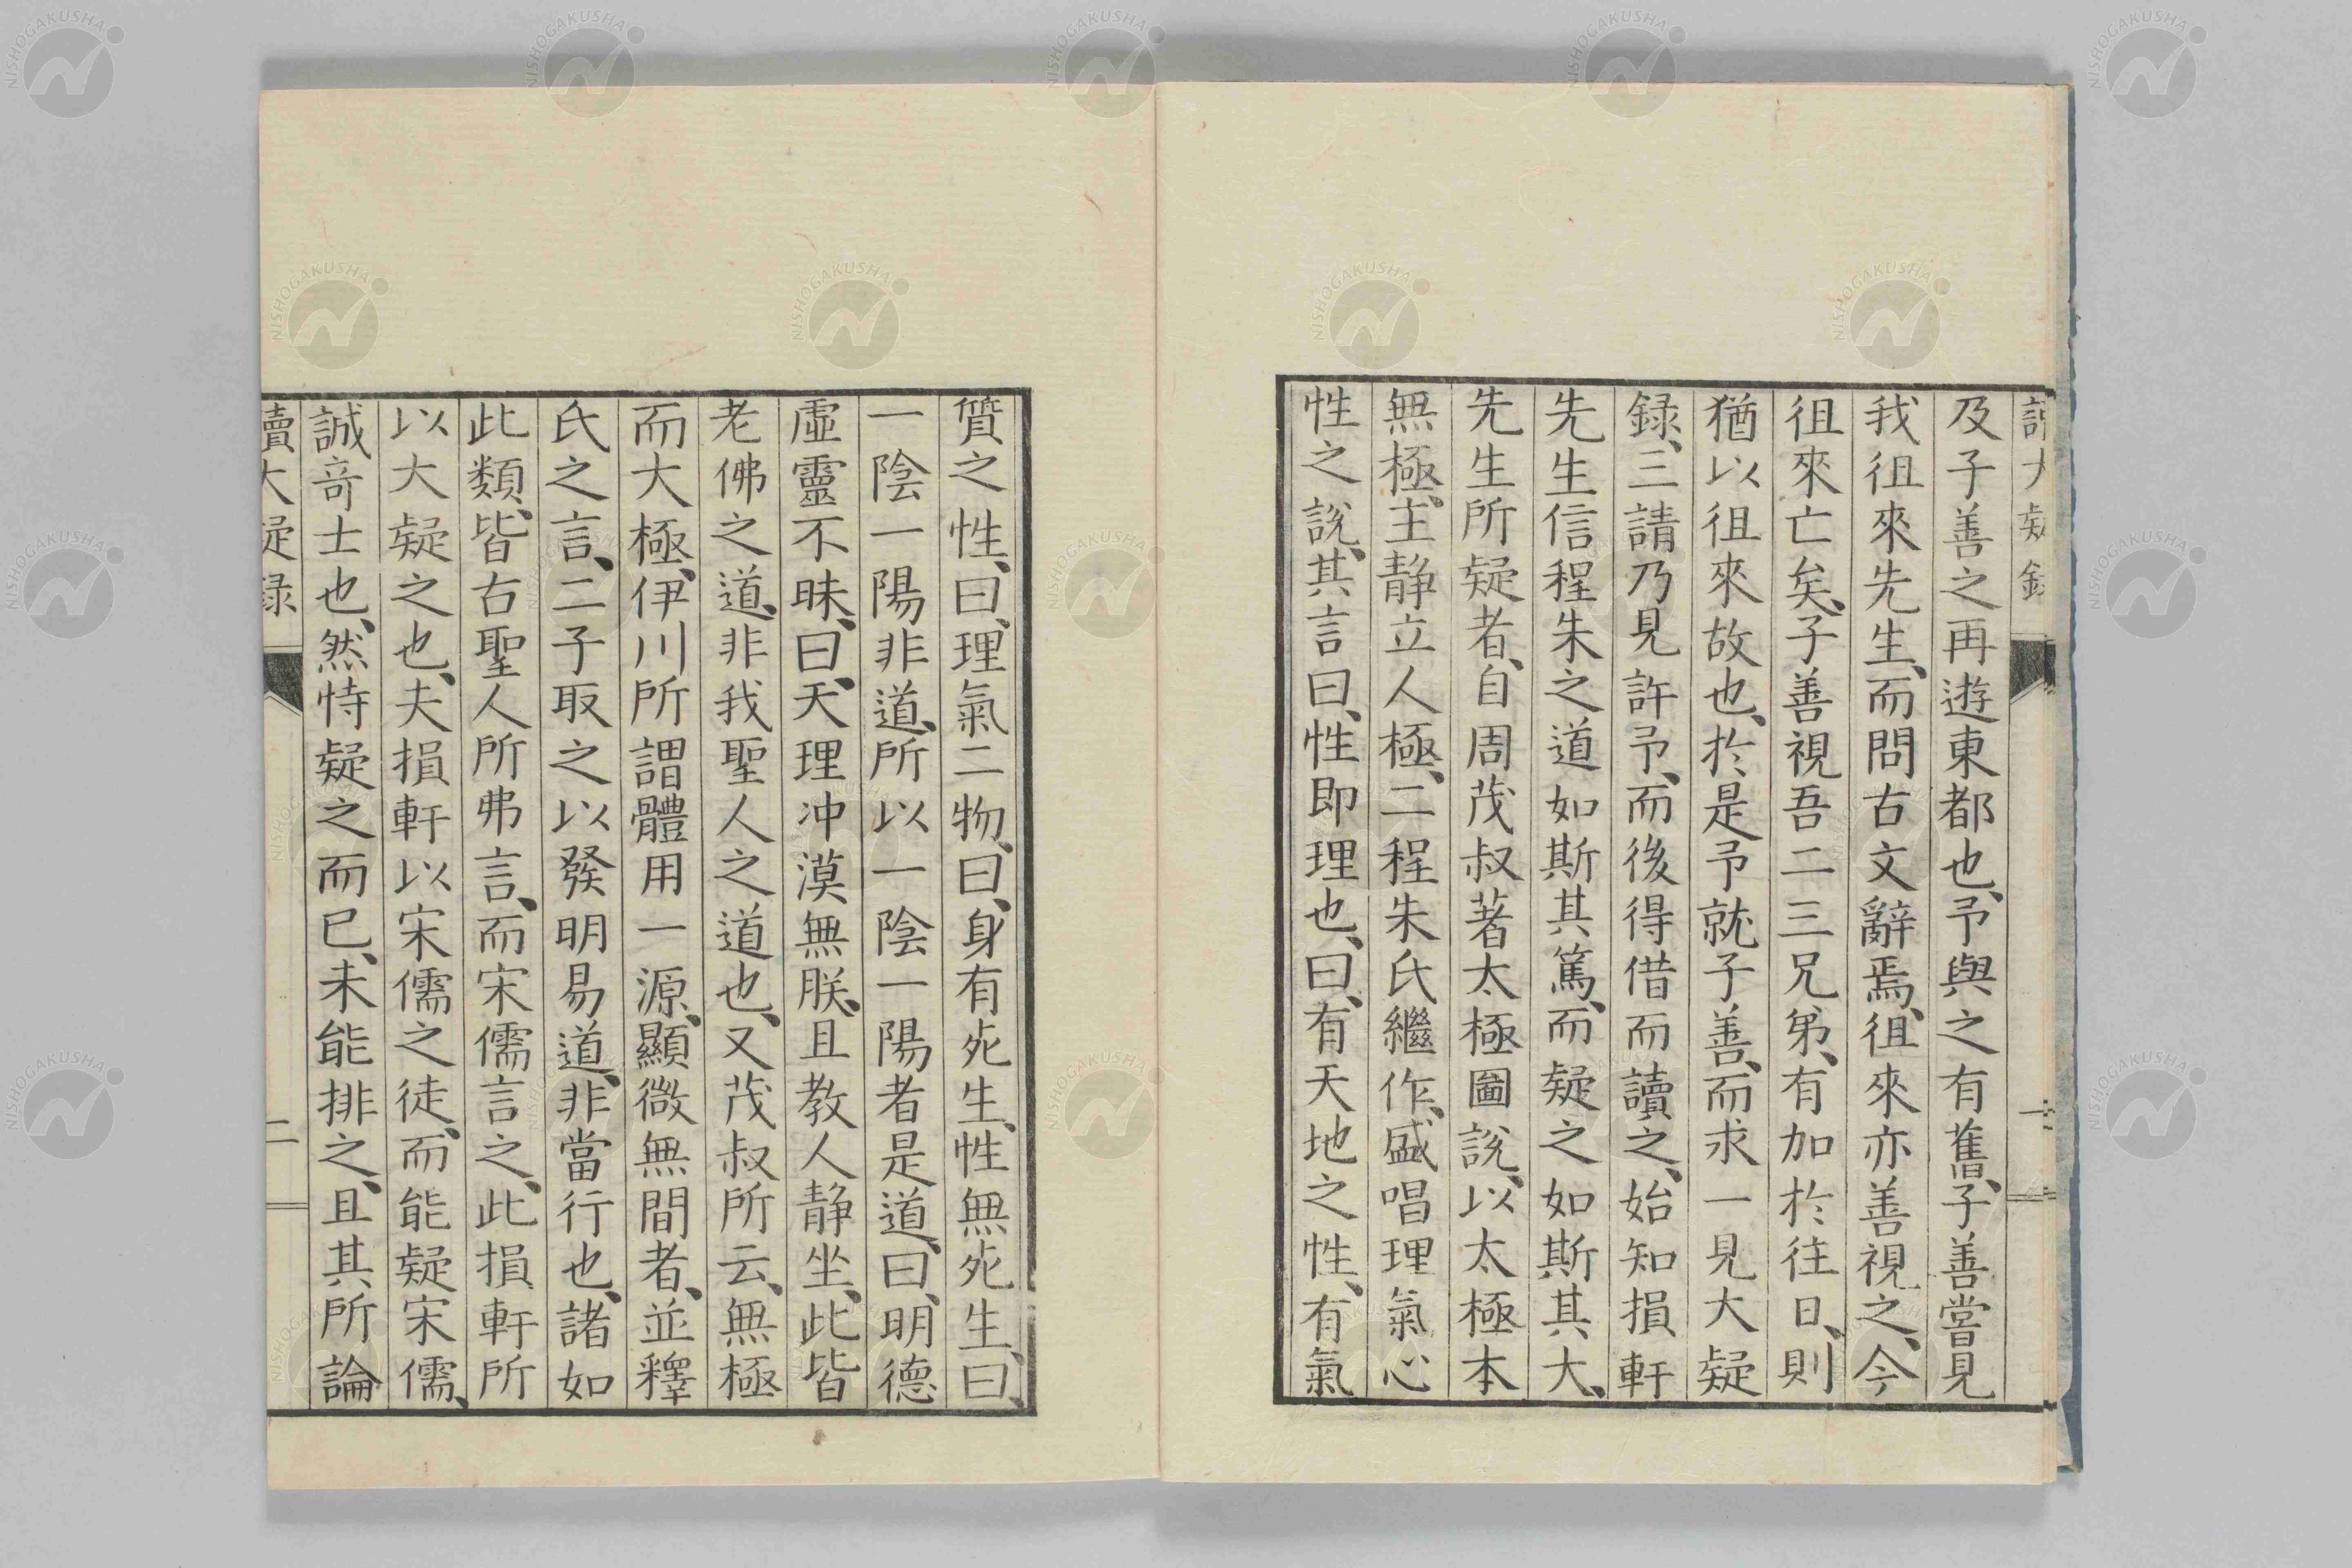 讀大疑錄
一
及子善之再遊東都也、予與之有舊、子善嘗見
我徂來先生、而問古文辭焉、徂來亦善視之、今
徂來亡矣、子善視吾二三兄弟、有加於往日、則
猶以徂來故也、於是予就子善、而求一見大疑
録、三請乃見許予、而後得借而讀之、始知損軒
先生信程朱之道如斯其篤、而疑之如斯其大、
先生所疑者、自周茂叔著太極圖說、以太極本
無極、主静立人極、二程朱氏繼作、盛唱理氣心
性之說、其言曰、性即理也、曰、有天地之性、有氣
質之性、曰、理氣二物、曰、身有死生、性無死生、曰、
一陰一陽非道、所以一陰一陽者是道、曰、明德
虛靈不昧、曰、天理冲漠無朕、且教人静坐、此皆
老佛之道、非我聖人之道也、又茂叔所云、無極
而大極、伊川所謂體用一源、顯微無間者、並釋
氏之言、二子取之以發明易道、非當行也、諸如
此類、皆古聖人所弗言、而宋儒言之、此損軒所
以大疑之也、夫損軒以宋儒之徒、而能疑宋儒、
誠奇士也、然恃疑之而已、未能排之、且其所論
讀大疑録
二
NISHOGAKUSHA